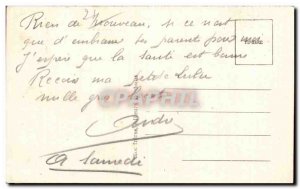 Rien de Nouveau, si ce n'est
que d'embrasser tes parents pour moi
J'espère que la santé est bonne
Reçois ma petite Lulu
mille gros
A Samedi